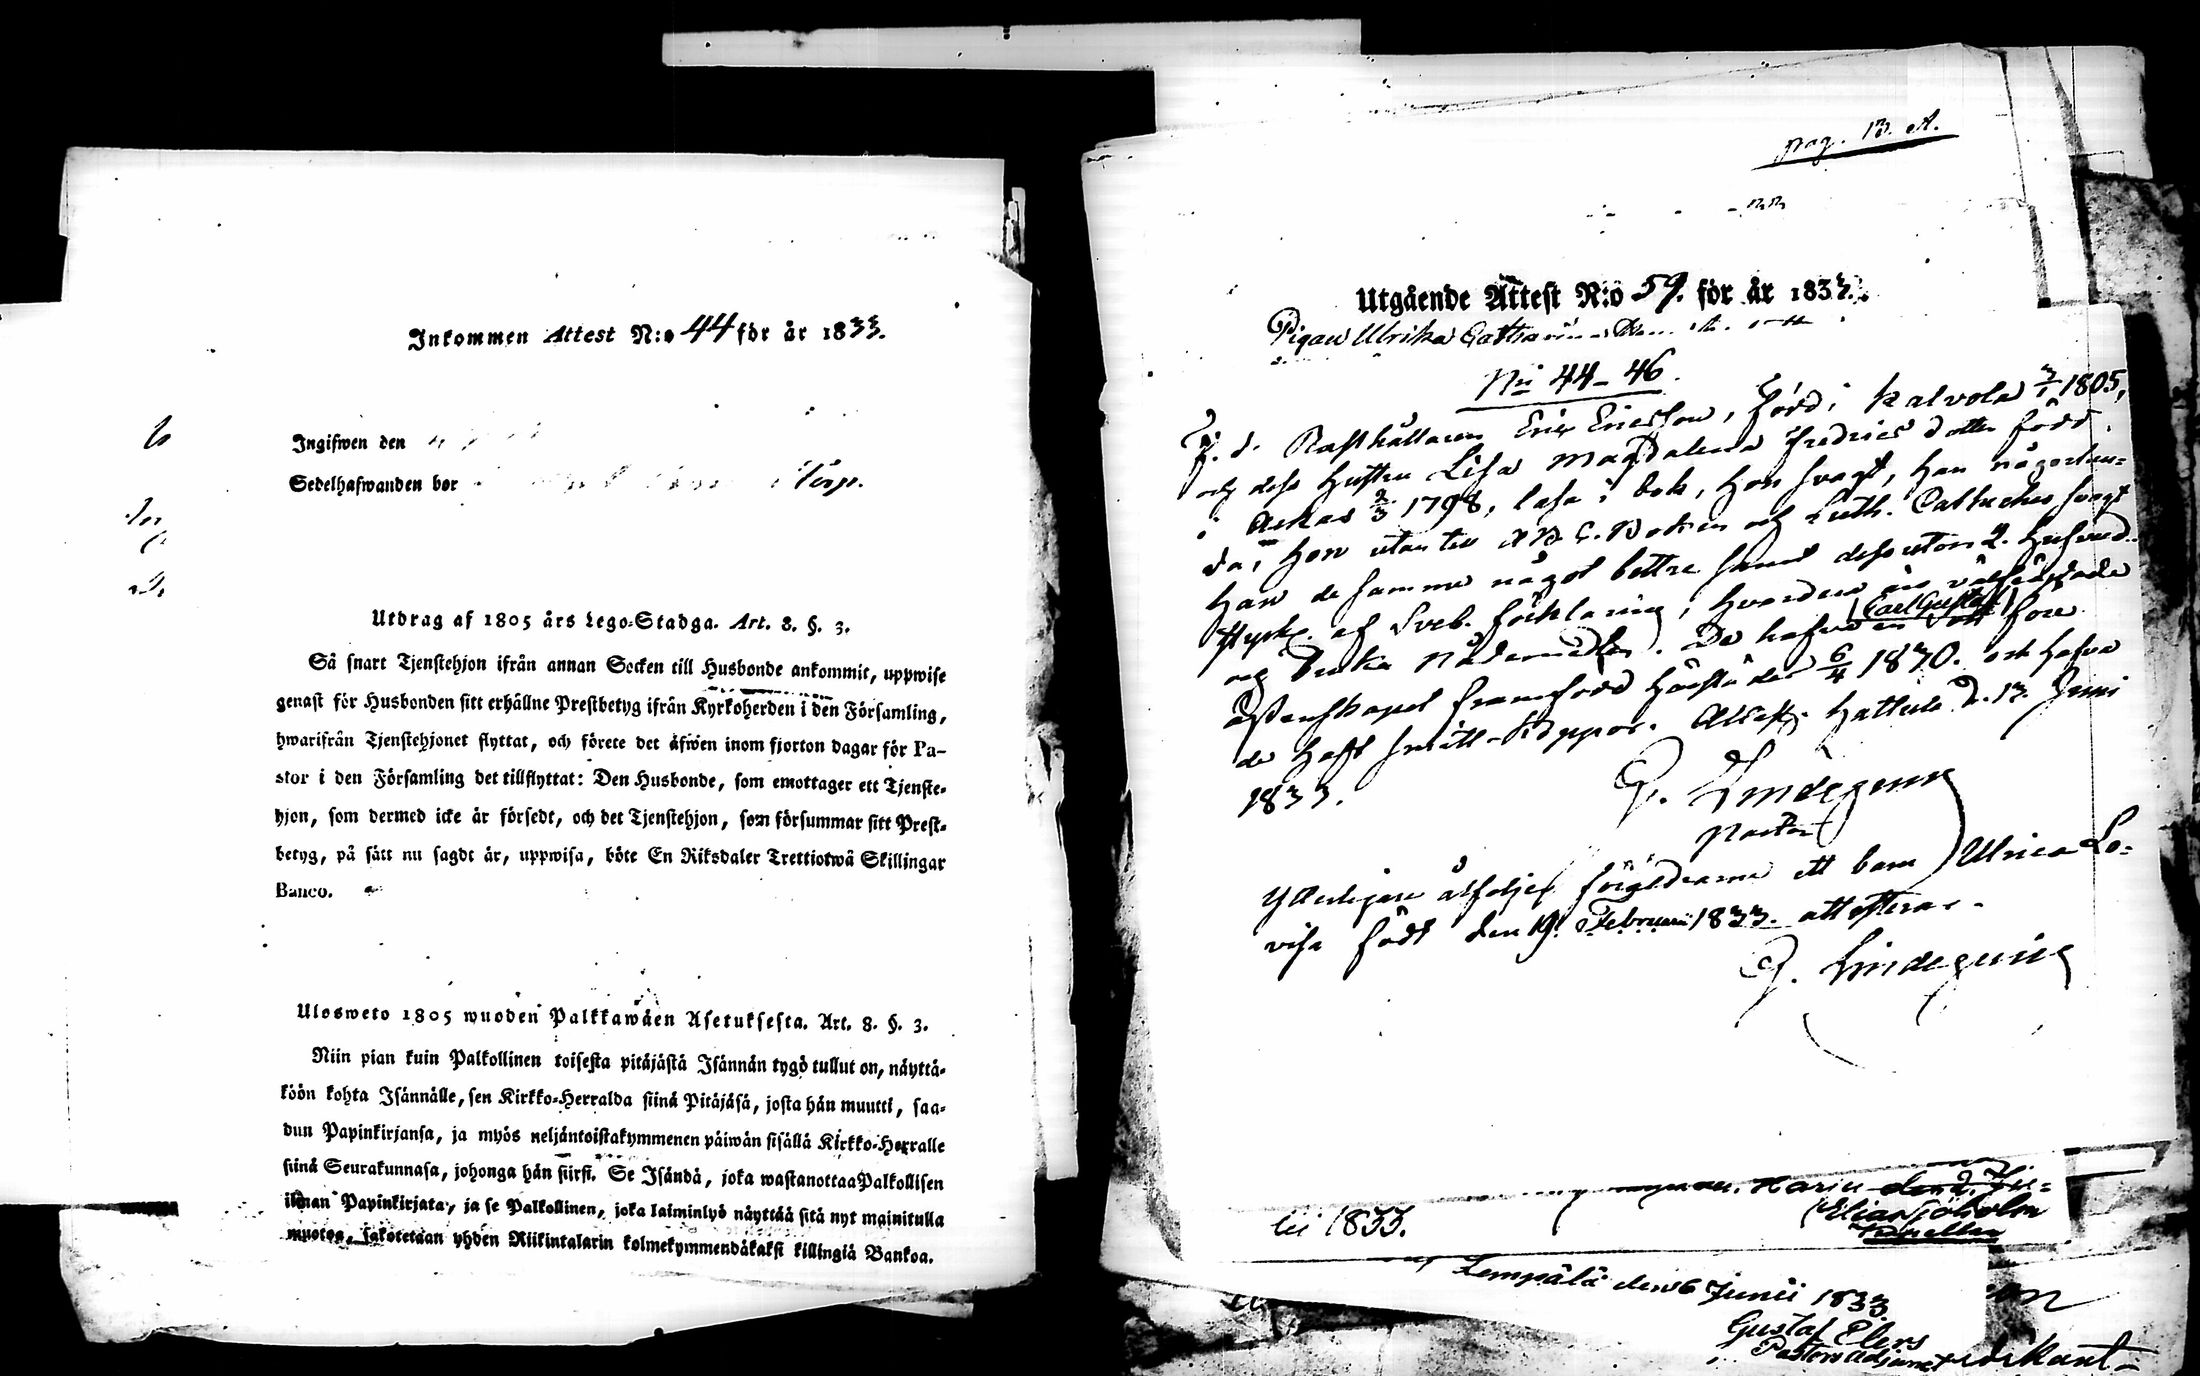 Inkommen Attest N:o 44 för år 1833.
Ingifwen den
Sedelhafwanden bor Torp.
Utdrag af 1805 års Lego-Stadga. Art. 8. §. 3.
Så snart Tjenstehjon ifrån annan Socken till Husbonde ankommit, uppwise
genast för Husbonden sitt erhållne Prestbetyg ifrån Kyrkoherden i den Församling,
hwarifrån Tjenstehjonet flyttat, och förete det äfwen inom fjorton dagar för Pa-
stor i den Församling det tillflyttat: Den Husbonde, som emottager ett Tjenste-
hjon, som dermed icke är försedt, och det Tjenstehjon, som försummar sitt Prest-
betyg, på sätt nu sagdt är, uppwisa, böte En Riksdaler Trettiotwå Skillingar
Banco.
Ulosweto 1805 wuoden Palkkawäen Asetuksesta. Art. 8. §. 3.
Niin pian kuin Palkollinen toisesta pitäjästä Isännän tygö tullut on, näyttä-
köön kohta Isännälle, sen Kirkko-Herralda siinä Pitäjäsä, josta hän muutti, saa-
dun Papinkirjansa, ja myös neljäntoistakymmenen päiwän sisällä Kirkko-Herralle
siinä Seurakunnasa, johonga hän siirsi. Se Isändä, joka wastanottaa Palkollisen
ilman Papinkirjata, ja se Palkollinen, joka laiminlyö näyttää sitä nyt mainitulla
muotoa, sakotetaan yhden Riikintalarin kolmekymmendäkaksi killingiä Bankoa.
pag. 13. A.
Utgående Attest N:o 59. för år 1833.
Pigan Ulrika Catharina
No 44-46.
F. d. Rusthållaren Eric Ericsson, född i Kalvola 3/1 1805,
och dess hustru Lisa Magdalena Fredricsdotter född
i Ackas 2/3 1798, läsa i bok, hon svagt, han någorlun-
da, hon utan till ABC-Boken och Luth. Cateches svagt
han de samma något bättre samt dessutom 2. hufvud-
stycke af Sveb. förklaring, hvardera äro välfrägdade
och bruka nådemedlen. De hafva en son (Carl Gustaf) före
ägtenskapet framfödd härstädes 6/4 1830. och hafva
de haft smitt-koppor. Attest. Hattula d. 13. Juni
1833.
G. Lindegren
Pastor
Ytterligare åtföljer föräldrarne ett barn Ulrica Lo-
visa född den 19. Februarii 1833. attesteras.
G. Lindegren
Karin den 2. Ju-
lii 1833.
Elias Sjöholm
Lempälä den 6 Junii 1833
Gustaf Elers
Pastors adjunct